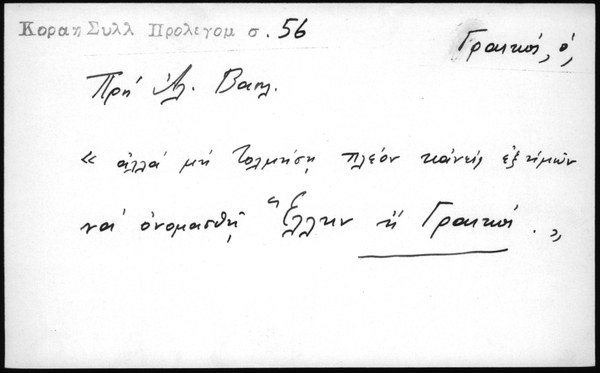 Κοραη Συλλ Προλεγομ σ. 56
Γραικός, ὁ,
Πρὸς Ἀλ. Βασιλ.
« ἀλλά μή τολμήσῃ πλέον κανείς ἐξ ἡμῶν
νά ὀνομασθῇ Ἕλλην ἤ Γραικός . »